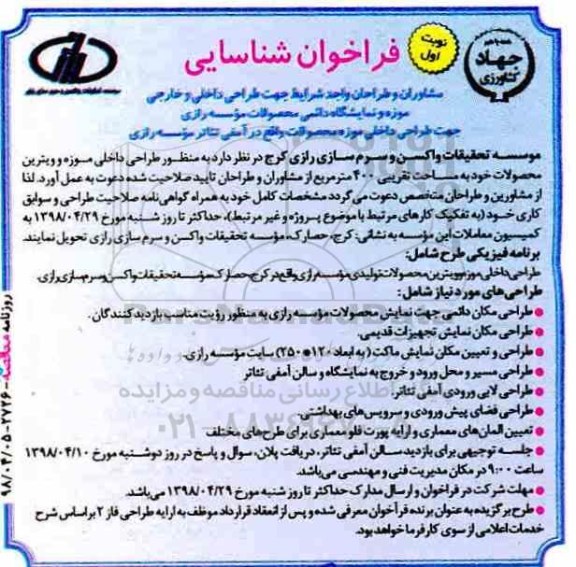 همه با هم
جهاد
کشاورزی
نوبت
اول
فراخوان شناسایی
مشاوران و طراحان واجد شرایط جهت طراحی داخلی و خارجی
موزه و نمایشگاه دائمی محصولات مؤسسه رازی
جهت طراحی داخلی موزه محصولات واقع در آمفی تئاتر مؤسسه رازی
موسسه تحقیقات واکسن و سرم سازی رازی کرج در نظر دارد به منظور طراحی داخلی موزه و ویترین
محصولات خود به مساحت تقریبی ۴۰۰ مترمربع از مشاوران و طراحان تایید صلاحیت شده دعوت به عمل آورد. لذا
از مشاورین و طراحان متخصص دعوت می گردد مشخصات کامل خود به همراه گواهی نامه صلاحیت طراحی و سوابق
کاری خود (به تفکیک کارهای مرتبط با موضوع پروژه و غیر مرتبط)، حداکثر تا روز شنبه مورخ ۱۳۹۸/۰۴/۲۹ به
کمیسیون معاملات این مؤسسه به نشانی: کرج، حصارک، مؤسسه تحقیقات واکسن و سرم سازی رازی تحویل نمایند.
برنامه فیزیکی طرح شامل:
طراحی داخلی موزه و ویترین محصولات تولیدی مؤسسه رازی واقع در کرج، حصارک، مؤسسه تحقیقات واکسن و سرم سازی رازی.
طراحی های مورد نیاز شامل:
● طراحی مکان دائمی جهت نمایش محصولات مؤسسه رازی به منظور رؤیت مناسب بازدیدکنندگان.
● طراحی مکان نمایش تجهیزات قدیمی.
● طراحی و تعیین مکان نمایش ماکت (به ابعاد ۱۲۰*۲۵۰) سایت مؤسسه رازی.
● طراحی مسیر و محل ورود و خروج به نمایشگاه و سالن آمفی تئاتر
● طراحی لابی ورودی آمفی تئاتر.
● طراحی فضای پیش ورودی و سرویس های بهداشتی.
● تعیین المان های معماری و ارایه پورت فلو معماری برای طرح های مختلف
● جلسه توجیهی برای بازدید سالن آمفی تئاتر، دریافت پلان، سوال و پاسخ در روز دوشنبه مورخ ۱۳۹۸/۰۴/۱۰
ساعت ۹:۰۰ در مکان مدیریت فنی و مهندسی می باشد.
● مهلت شرکت در فراخوان و ارسال مدارک حداکثر تا روز شنبه مورخ ۱۳۹۸/۰۴/۲۹ می باشد.
● طرح برگزیده به عنوان برنده فرآخوان معرفی شده و پس از انعقاد قرارداد موظف به ارایه طراحی فاز ۲ بر اساس شرح
خدمات اعلامی از سوی کارفرما خواهد بود.
روزنامه - ۲۷۲۶-۹۸/۰۴/۰۵